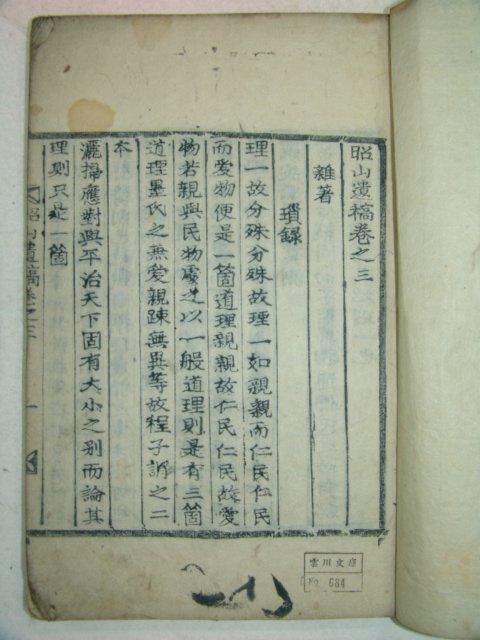 昭山遺稿卷之三
雜著
瑣錄
理一故分殊分殊故理一如親親而仁民仁民
而愛物便是一箇道理親親故仁民仁民故愛
物若親與民物處之以一般道理則是有三箇
道理墨氏之無愛親踈無異等故程子誚之二
本
灑掃應對與平治天下固有大小之別而論其
理則只是一箇
昭山遺稿卷之三
一
雲川文庫
No. 684